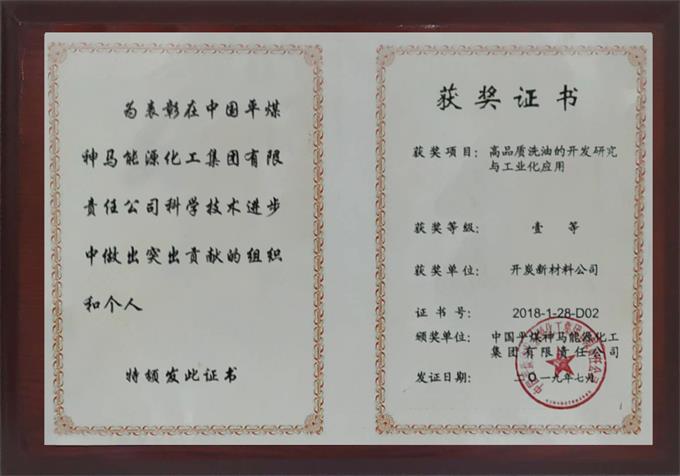 为表彰在中国平煤
神马能源化工集团有限
责任公司科学技术进步
中做出突出贡献的组织
和个人
特颁发此证书
获奖证书
获奖项目： 高品质洗油的开发研究
与工业化应用
获奖等级： 壹 等
获奖单位： 开炭新材料公司
证 书 号： 2018-1-28-D02
颁奖单位： 中国平煤神马能源化工
集团有限责任公司
发证日期： 二〇一九年七月